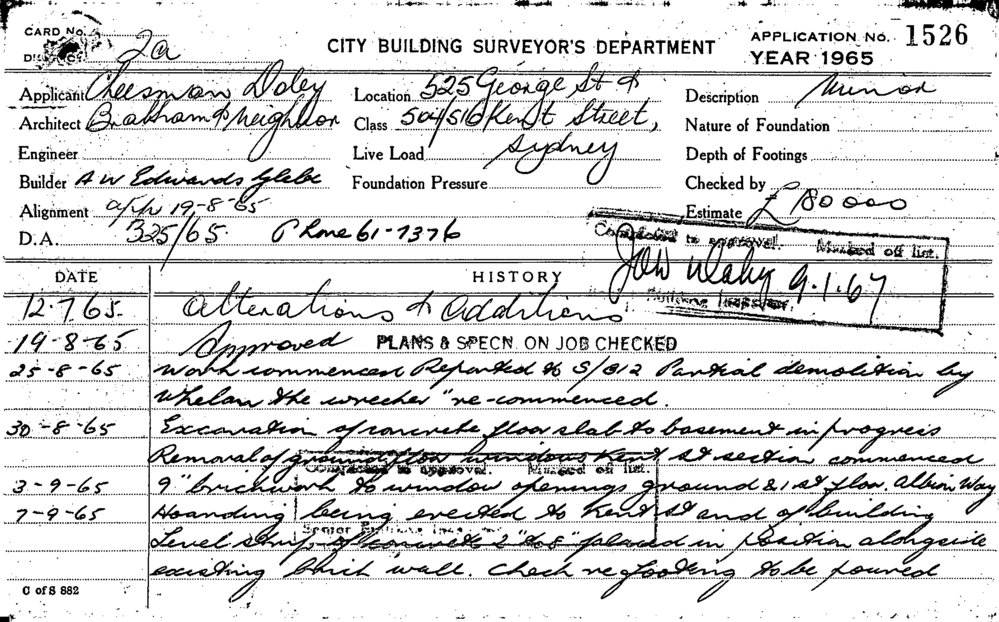 CARD No.
2a
CITY BUILDING SURVEYOR'S DEPARTMENT
APPLICATION No. 1526
YEAR 1965
Applicant Cheesman Doley
Location 525 George St &
Description Minor
Architect Brabham & Neighbor
Class 504/510 Kent Street,
Nature of Foundation
Engineer
Live Load Sydney
Depth of Footings
Builder A W Edwards Glebe
Foundation Pressure
Checked by
Alignment app 19-8-65
Estimate £ 180000
D.A. 325/65. Phone 61-7376
Completed to approval. Marked off list.
9.1.67
Building Inspector.
DATE
HISTORY
12.7.65. Alterations & Additions
19-8-65 Approved PLANS & SPECN. ON JOB CHECKED
25-8-65 Work commenced Reported to S/812 Partial demolition by
Whelan the wrecker "re-commenced.
30-8-65 Excavation of concrete floor slab to basement in progress
Removal of ground floor windows Kent St section commenced
Completed to approval. Marked off list.
3-9-65 9" brickwork to window openings ground & 1st floor. Albion Way
7-9-65 Hoarding being erected to Kent St end of building
Senior
Level strip of concrete 2" to 8" placed in position alongside
existing brick wall. Check re footing to be poured
C of S 882